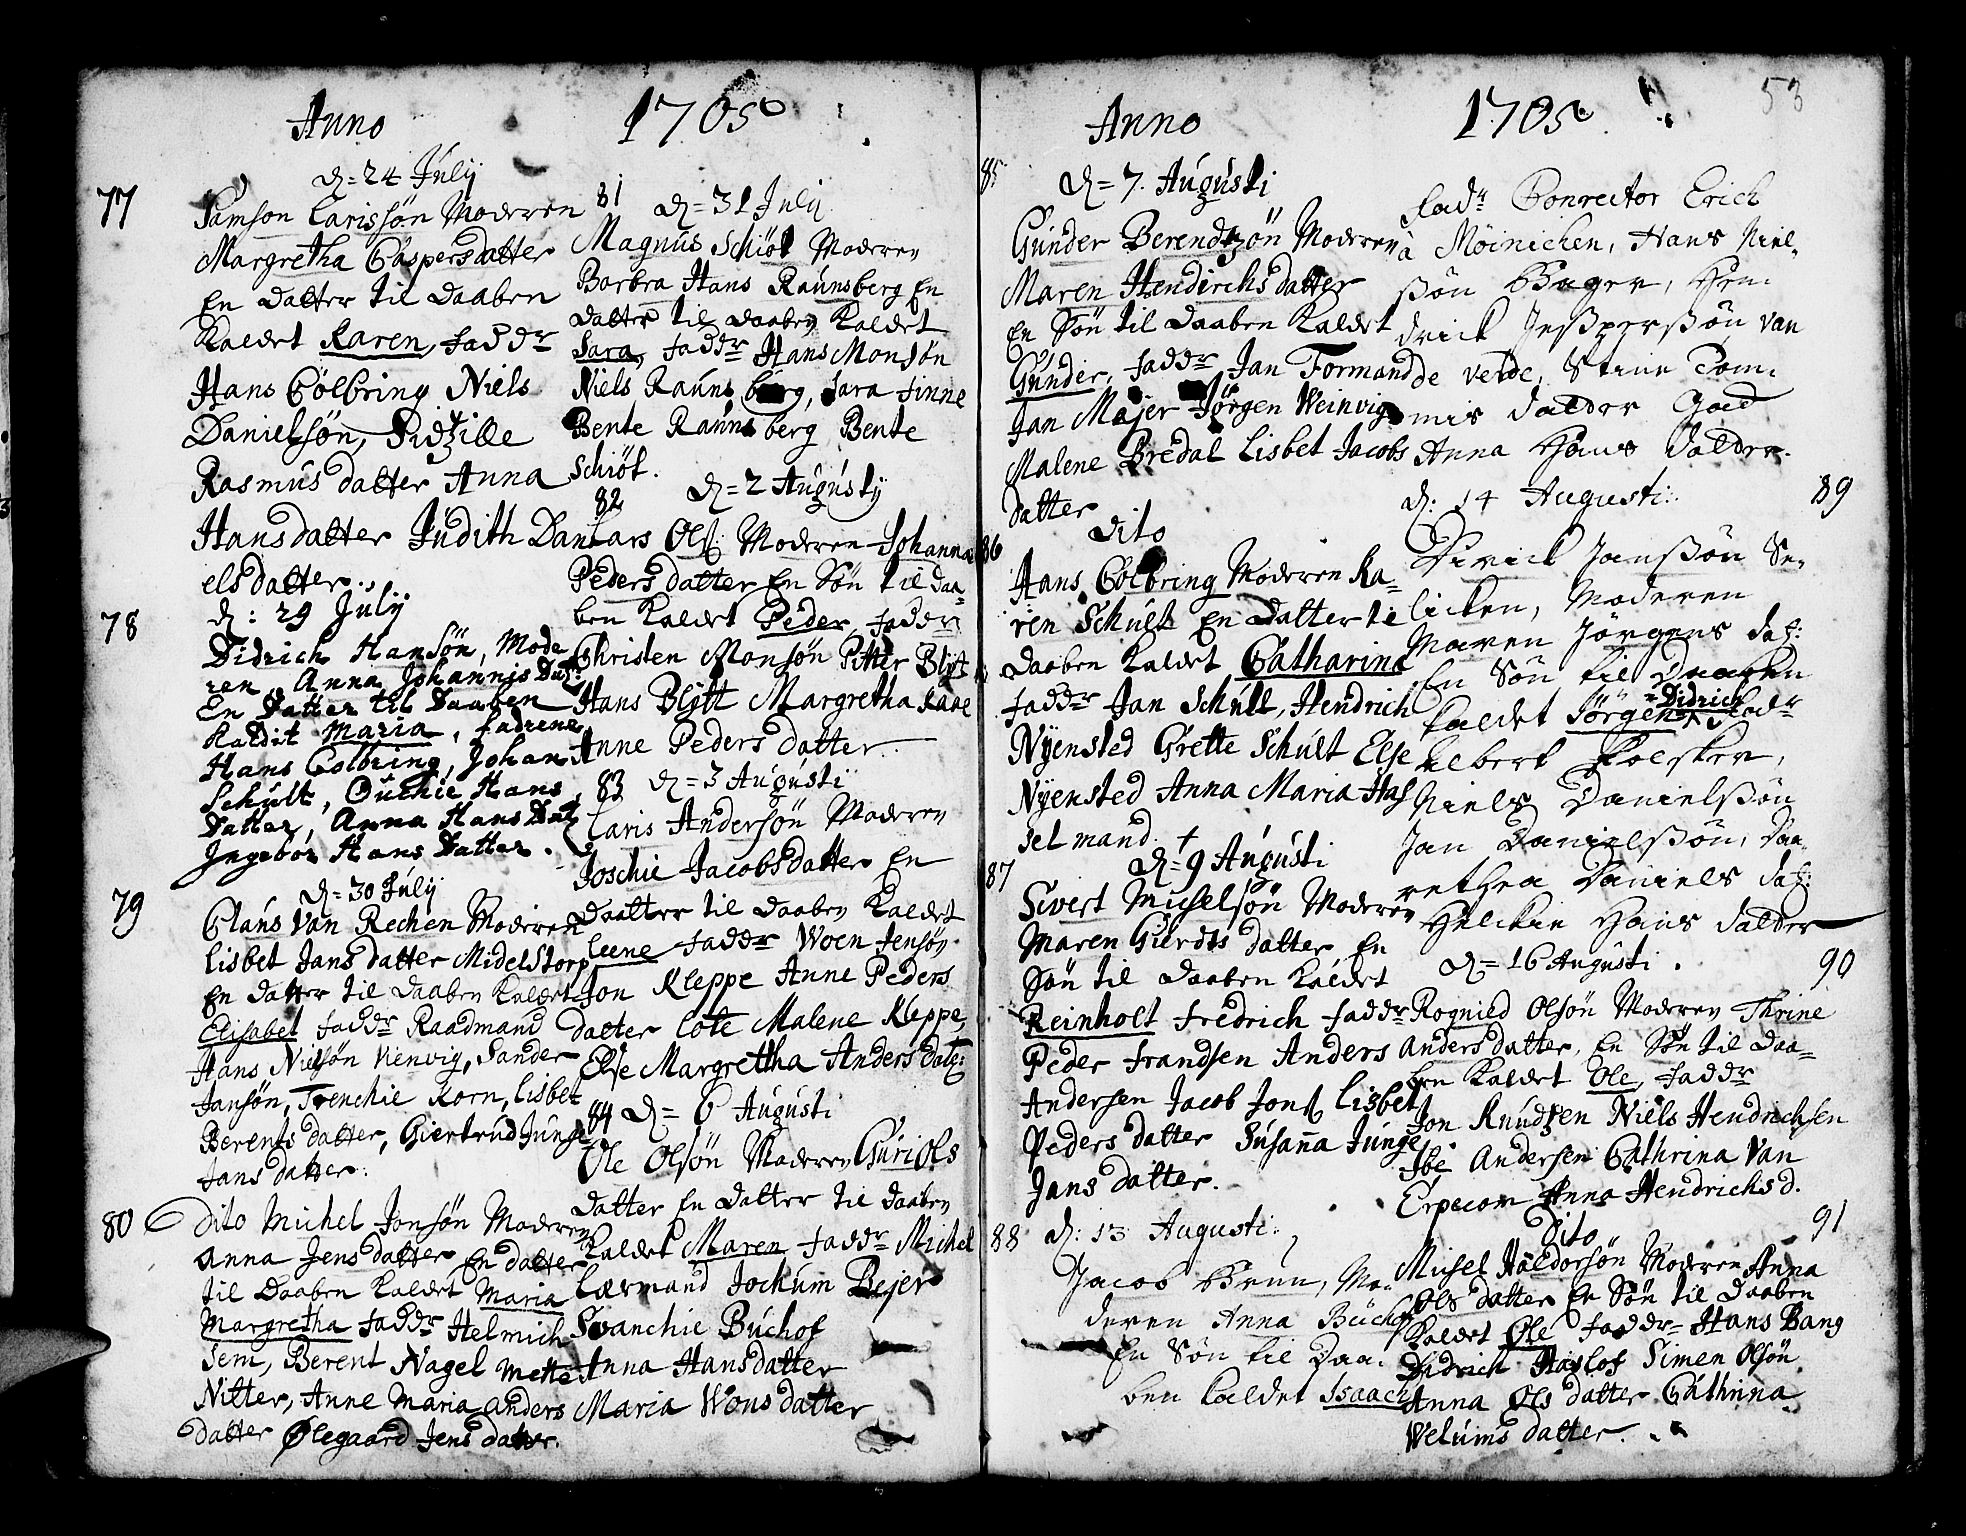 Anno 1705
77
D= 24 July
Samson Larissøn Moderen
Margretha Caspersdatter
En datter til daaben
Kaldet Karen, fadd.r
Hans Cölbring Niels
Danielsøn, Sidzille
Rasmus datter Anna
Hansdatter Judith Dani
elsdatter.
78
D: 29 July
Didrich Hansøn, Mode
ren Anna Johannis Dat:
En Datter til Daaben
Kaldit Maria, fadrene
Hans Colbring, Johan
Schult, Ouchie Hans
Datter, Anna Hans Dat
Jngebor Hans Datter.
79
D= 30 July
Claus Van Rechen Moderen
Lisbet Jans datter Midelstorp
En datter til Daaben Kaldet
Elisabet fadd.r Raadmand
Hans Nielsøn Vienvig, Sander
Jansøn, Trenchie Korn, Lisbet
Berents datter, Giertrud Junge
Jans datter.
80
Dito Michel Jonsøn Moderen
Anna Jens datter En datter
til Daaben Kaldet Maria
Margretha fadd.r Helmich
Sem, Berent Nagel Mette
Nitter, Anne Maria Anders
datter Ølegaard Jens datter.
81
D= 31 July
Magnus Schiöt Moderen
Barbra Hans Raunsberg En
datter til daaben Kaldet
Sara, fadd.r Hans Monsøn
Niels Rauns berg, Sara finne
Bente Raunsberg Bente
Schiöt.
82
D= 2 Augusty
Lars Ols: Moderen Johanna
Peders datter En Søn til daa=
ben Kaldet Peder, fadd.r
Christen Monsøn Pitter Blyt
Hans Blytt Margretha
Anne Peders datter.
83
D= 3 Augusti
Laris Andersøn Moderen
Joschie Jacobsdatter En
Daatter til daaben Kaldet
Leene fadd.r Woen Jensøn
Jon Kleppe Anne Peders
datter Lote Malene Kleppe,
Else Margrettha Anders dat:
84
D= 6 Augusti
Ole Olsøn Moderen Guri Ols
datter En datter til daaben
Kaldet Maren fadd.r Michel
Lærmand Jochum Bejer
Svanchie Buchof
Anna Hansdatter
Maria Wons datter
Anno 1705
53
85
D= 7. Augusti
Gunder Berendtzøn Moderen
Maren Hendrichsdatter
En Søn til Daaben Kaldet
Gunder, fadd.r Jan Formand
Jan Majer Jørgen Weinvig
Malene Bredal Lisbet Jacobs
datter
86
Dito
Hans Colbring Moderen Ka=
ren Schult En datter til
Daaben Kaldet Catharina
fadd.r Jan Schult, Hendrich
Nyensted Grette Schult Else
Nyensted Anna Maria Has
selmand. +
87
D= 9 Augusti
Sivert Michelsøn Moderen
Maren Gierdts datter En
Søn til Daaben Kaldet
Reinholt Fredrich fadd.r
Peder Frandsen Anders
Andersen Jacob Jons Lisbet
Peders datter Susanna Junge
Jans datter.
88
D: 13 Augusti.
Jacob Brun, Mo=
deren Anna Buchof
En Søn til Daa=
ben Kaldet Isaach
Fad.r Conrector Erich
à Möinichen, Hans Niel=
ssøn Bager, Hen=
drick Jessperssøn van
de velde, Stine Tom=
mis datter Gad
Anna Hans datter.
89
D: 14 Augusti.
Dirick Janssøn Se=
licken, Moderen
Maren Jörgens dat:
En Søn til Daaben
Kaldet Jørgen Didrich, Fad.r
Elbert Folsker,
Niels Danielssøn
Jan Danielssøn,
rethea Daniels dat:
Hilckie Hans datter
90
D= 16 Augusti.
Rognied Olsøn Moderen Thrine
Anders datter, En Søn til Daa=
ben Kaldet Ole, fadd.r
Jon Knudzen Niels Hendrichsen
Ibe Andersen Cathrina Van
Erpecom Anna Hendrichs d.
91
Dito
Michel Haldorsøn Moderen Anna
Ols datter En Søn til Daaben
Kaldet Ole fadd.r Hans Bang
Didrich Haslof Simen Olsøn
Anna Ols datter Cathrina
Welums datter.